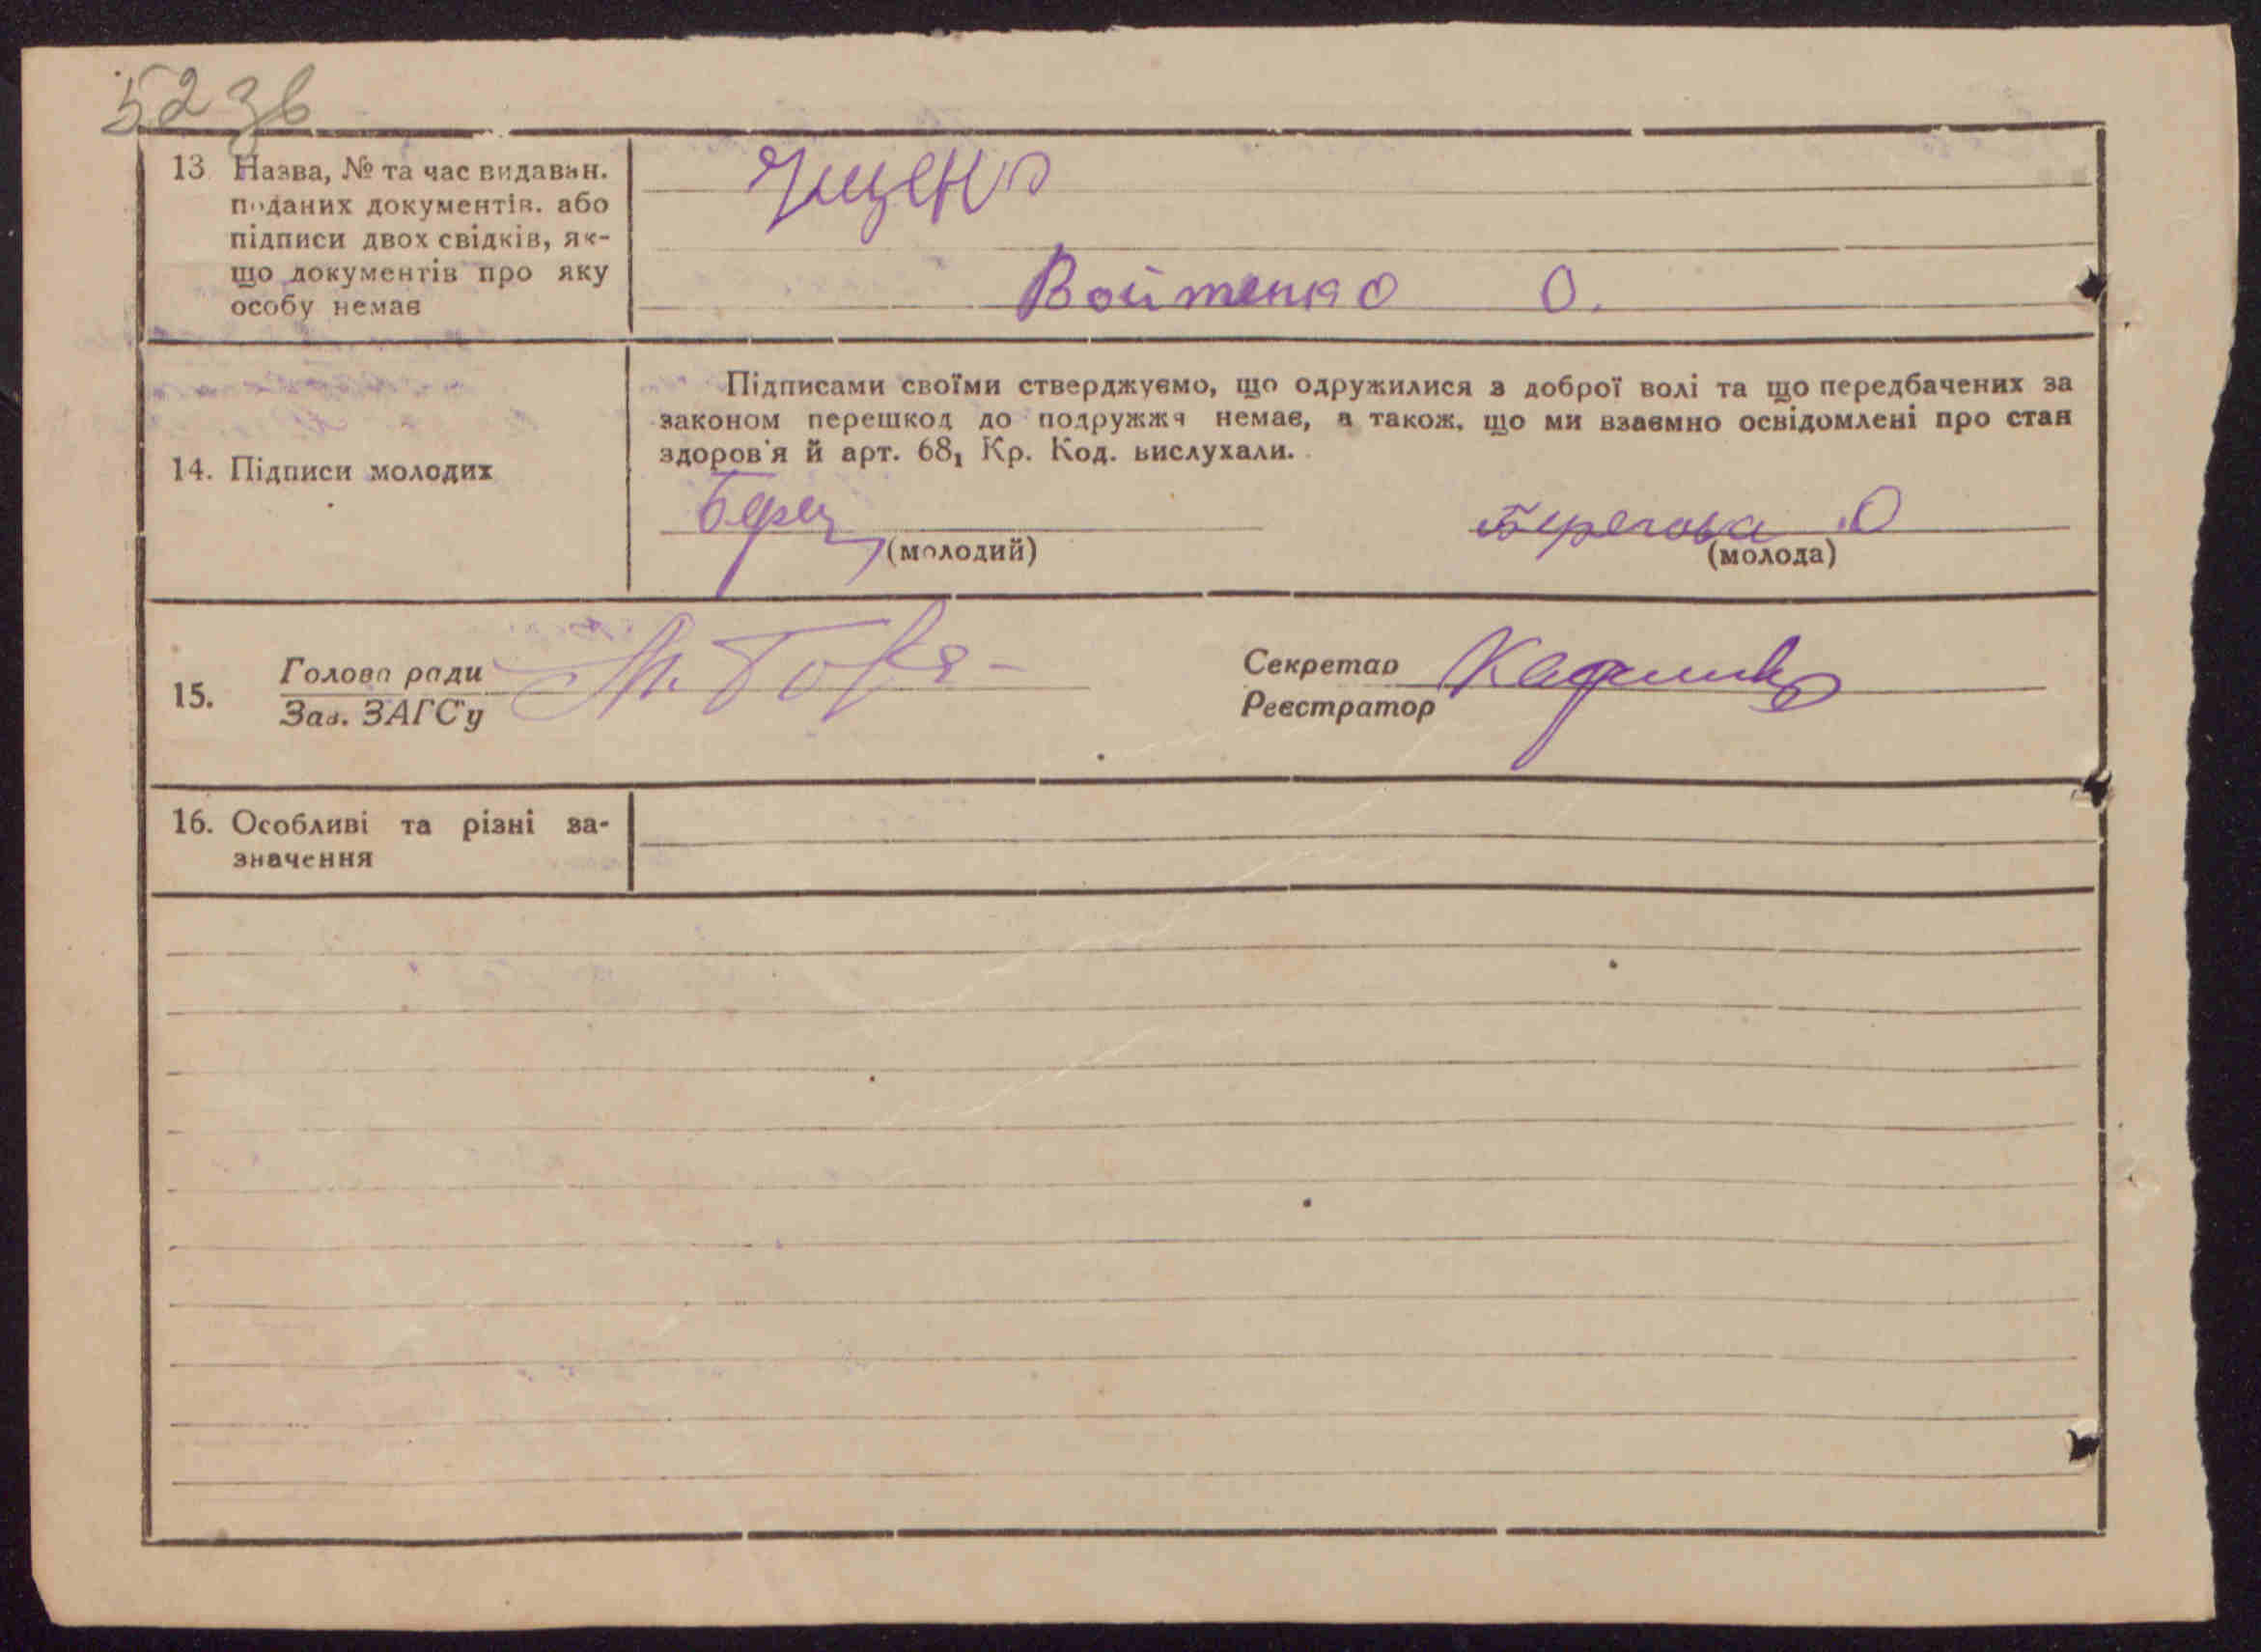 52 зв
13 Назва, № та час видаван.
поданих документів. або
підписи двох свідків, як-
що документів про яку
особу немає
Ященко
Войтенко О.
14. Підписи молодих
Підписами своїми стверджуємо, що одружилися з доброї волі та що передбачених за
законом перешкод до подружжя немає, а також, що ми взаємно освідомлені про стан
здоров'я й арт. 68₁ Кр. Код. вислухали.
(молодий)
Берегова О
(молода)
15. Голова ради
Зав. ЗАГС'у
Секретар
Реєстратор
16. Особливі та різні за-
значення